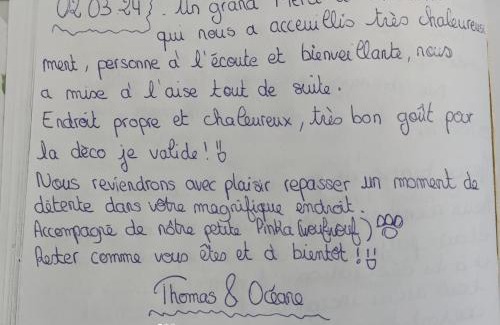 02.03.24}. Un grand Merci
qui nous a acceuillis très chaleureuse
ment, personne à l'écoute et bienveillante, nous
a mixe à l'aise tout de suite.
Endroit propre et chaleureux, très bon goût par
la déco je valide !
Nous reviendrons avec plaisir repasser un moment de
détente dans votre magnifique endroit.
Accompagné de nôtre petite Pinka (woufwouf)
Rester comme vous êtes et à bientôt !!
Thomas & Océane